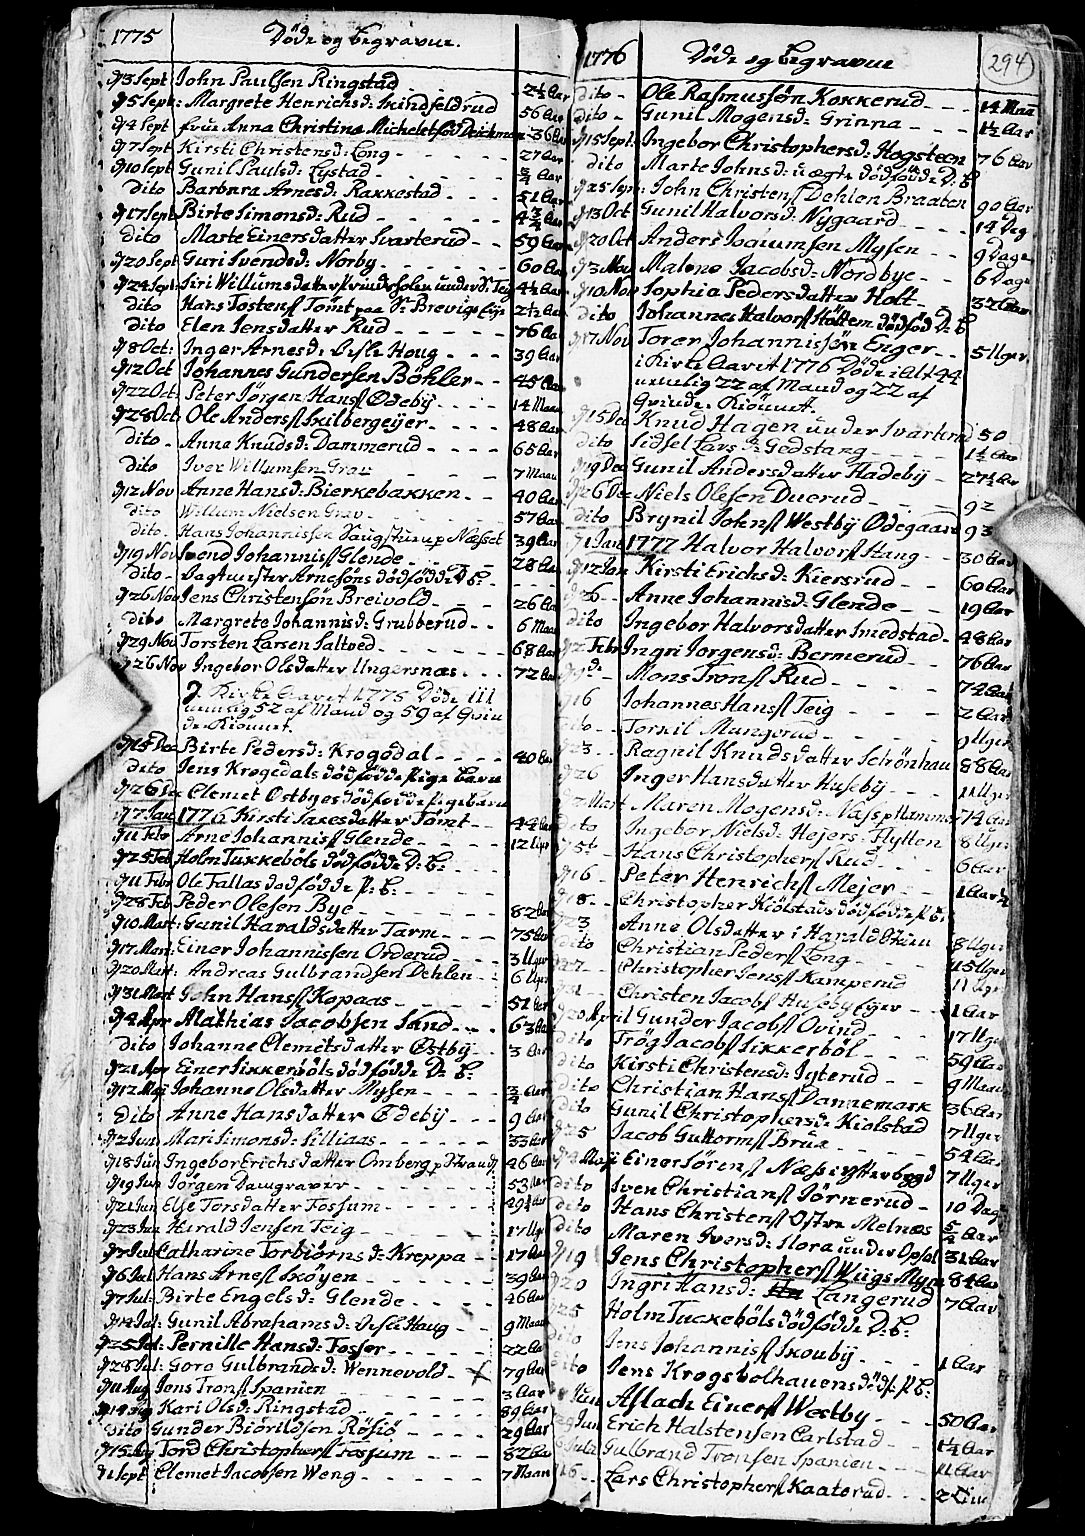 1775 Döde og begravne.
d 3 Sept John Paulsen Ringstad 2½ Aar
d 5 Sept: Margrete Henrichsd: Skindfeldrud 56 Aar
d 4 Sept Frue Anna Christina Michelet född 36 Aar
d 7 Sept Kirsti Christensd: Long 27 Aar
d 10 Sept Gunil Paulsd: Lystad ¾ Aar
Dito Barbara Arnesd: Rakkestad 51 Aar
d 17 Sept Birte Simonsd: Rud 4¾ Aar
Dito Marte Einersdatter Svarterud 59 Aar
d 20 Sept Guri Svendsd: Norby 60 Aar
d 24 Sept: Siri Willumsdatter under d: Teig 4½ Aar
dito Hans Tostens Tomt paa Brevigs Eije 2½ Aar
dito Elen Jensdatter Rud 76 Aar
d 8 Oct: Inger Arnesd: Houg 39 Aar
d 12 Oct Johannes Gundersen Böhler 45 Aar
d 22 Oct: Peter Jörgen Hans Ödeby 14 Maan
d 28 Oct Ole Anders Skilbergeyer 48 Aar
dito Anna Knudsd: Dammerud 65 Aar
dito Iver Willumsen Grav 7 Maan
d 12 Nov Anne Hansd: Bierkebakken 40 Aar
dito Willum Nielsen Grav 57 Aar
dito Hans Johannissen Næsset 39 Aar
d 19 Nov Svend Johannis Glende 28 Aar
dito Arnesöns dödfödde D: B:
d 26 Nov Jens Christensön Breivold 26 Aar
dito Margrete Johannisd: Grubberud 6 Maan
d 29 Nov Torsten Larsen Saltved 68 Aar
d 26 Nov Ingebor Olsdatter Ungersnæs 72 Aar
I Kirke Aaret 1775 Döde 111
nemlig 52 af Mand og 59 af Qvin
de Kiönnet.
d 15 Dec Birte Pedersd: Krogsdal 40 Aar
dito Jens Krogsdals dödfödde Pige Barn
d 26 Dec Clemet Ostbyes dödfödde Pigebarn
d 7 Jan 1776 Kirsti Saxesdatter Tomt 4¾ Aar
d 11 Feb Arne Johannis Glende 12 Uger
d 25 Feb Holm Tukkebóls dödfödde D: B:
d 11 Febr Ole Fallas dödfödde P: B:
d 28 Feb Peder Olesen Bye 82 Aar
d 10 Mart: Gunil Haraldsdatter Tarm 75 Aar
d 17 Mart: Einer Johannissen Orderud 3 Uger
d 20 Mart: Andreas Gulbrandsen Dehlen 6 Uger
d 31 Mart John Hans Kopaas 51 Aar
d 4 Apr Mathias Jacobsen Sand 63 Aar
Dito Johanne Clemetsdatter Ostby 3 Aar
d 21 Apr Einer Sikkerböls dödfödde D: B:
d 12 Maj Johanne Olsdatter Mysen ¾ Aar
Dito Anne Hansdatter Edeby 9 Aar
d 2 Jun Mari Simonsd: Silliaas 33 Aar
d 18 Jun Ingebor Erichsdatter Omberg 46 Aar
d 19 Jun Jörgen Damgraver 53 Aar
d 21 Jun Else Torsdatter Fossum 49½ Aar
d 23 Jun Harald Jensen Teig 17 Uger
d 7 Jul Catharine Torbiörnsd: Kreppa 17 Aar
d 6 Jul Hans Arnes Skóyen 39 Aar
d 7 Jul: Birte Engelsd: Glende 46 Aar
d 14 Jul: Gunil Abrahamsd: Haug 9 Maan
d 25 Jul: Pernille Hansd: Fosser 22 Aar
d 28 Jul: Goro Gulbrandsd: Wennevold 79 Aar
d 11 Aug Jens Trons Spanien 3 Aar
d 14 Aug Kari Olsd: Ringstad 89 Aar
Dito Gunder Biörildsen Rösiö 29 Aar
d 15 Aug Tord Christophers Fossum 82 Aar
d 1 Sept Clemet Jacobsen Weng 7 Maan
1776 Döde og begravne 294
dito Ole Rasmussön Kokkerud 14 Maan
dito Gunil Mogensd: Grinna 1½ Aar
d 15 Sept: Ingebor Christophersd: Hogsteen 76 Aar
dito Marte Johnsd: uægte dödfödde D: B
d 25 Sept: John Christens Dehlen Braaten 90 Aar
d 13 Oct Gunil Halvorsd: Nygaard 14 Dag
d 20 Oct Anders Mysen 9 Dage
d 3 Nov Malene Jacobsd: Nordbye 6 Dage
d 10 Nov Sophia Pedersdatter Holt 32 Aar
dito Johannes Halvors Höttem dödföd D: B
d 17 Nov Torer Johannissön Enger 5 Uger
i Kirke Aaret 1776 Döde i Alt 44
nemlig 22 af Mand og 22 af
Qvinde Kiönnet.
d 15 Dec Knud Hagen under Svarterud 50
dito Sidsel Larsd: Gedstang 1½ Aar
d 19 Dec Gunil Andersdatter Fladeby 27½ Aar
d 26 Dec Niels Olesen Ducrud 92
dito Brynil Johns Westby Ödegaard 93
d 1 Jan 1777 Halvor Halvors Haug 30 Aar
d 12 Jan Kirsti Erichsd: Kiersrud 60 Aar
d 26 Anne Johannisd: Glende 19 Aar
dito Ingebor Halvorsdatter Smedstad 48 Aar
d 2 Febr Ingri Jorgensd: Bermerud 76 Aar
d 9de Mons Trons Rud 74 Aar
d 16 Johannes Hans Teig 2 Aar
dito Torkil Mangerud 9 Uger
d 23 Ragnil Knudsdatter Schönhau 88 Aar
d 26 Inger Hansdatter Huseby 11 Uger
d 2 Mart Maren Mogensd: Næss 74 Aar
dito Ingebor Nielsd: Hejers Flytten 8 Uger
d 5t Hans Christophers Rud 6 Aar
d 16 Peter Henrichs Mejer 1 Aar
d 18 Christopher Kiólstads dödfödde P: B:
d 23 Anne Olsdatter i Harald Stuen 8 Uger
dito Christian Peders Long 15 Uger
Christopher Jens Kamperud 11 Uger
Christen Jacobs Huseby Eyer 1 Aar
d 20 April Gunder Jacobs Ovind 17 Uger
dito Trög Jacobs Sikkerböl 59 Aar
dito Kirsti Christensd: Igterud 9 Maan
dito Christian Hans Dannemark 36 Aar
dito Gunil Christophersd: Kiolstad 7 Uger
d 25 Jacob Guttorms Brua 54 Aar
Maji Einer Sörens Næss 7 Uger
dito Sven Christians Sörnerud 10 Dag
dito Hans Christens Ostre Melnæs ¾ Aar
dito Maren Iversd: Mora under Opsal 31 Aar
d 19 Jens Christophers Wiigs Myra 84 Aar
d 20 Ingri Hansd: Langerud 7 Aar
d 25 Holm Tuckeböls dödfödde D: B:
dito Jens Johannis Skouby 1 Aar
dito Jens Krogsbolhauens dödf: P: B:
Jun Aslach Einers Westby 50 Aar
Jun Erich Halstensen Carlstad 1½ Aar
Julii Gulbrand Tronsen Spanien 11 Aar
16 Lars Christophers Kaaterud 2